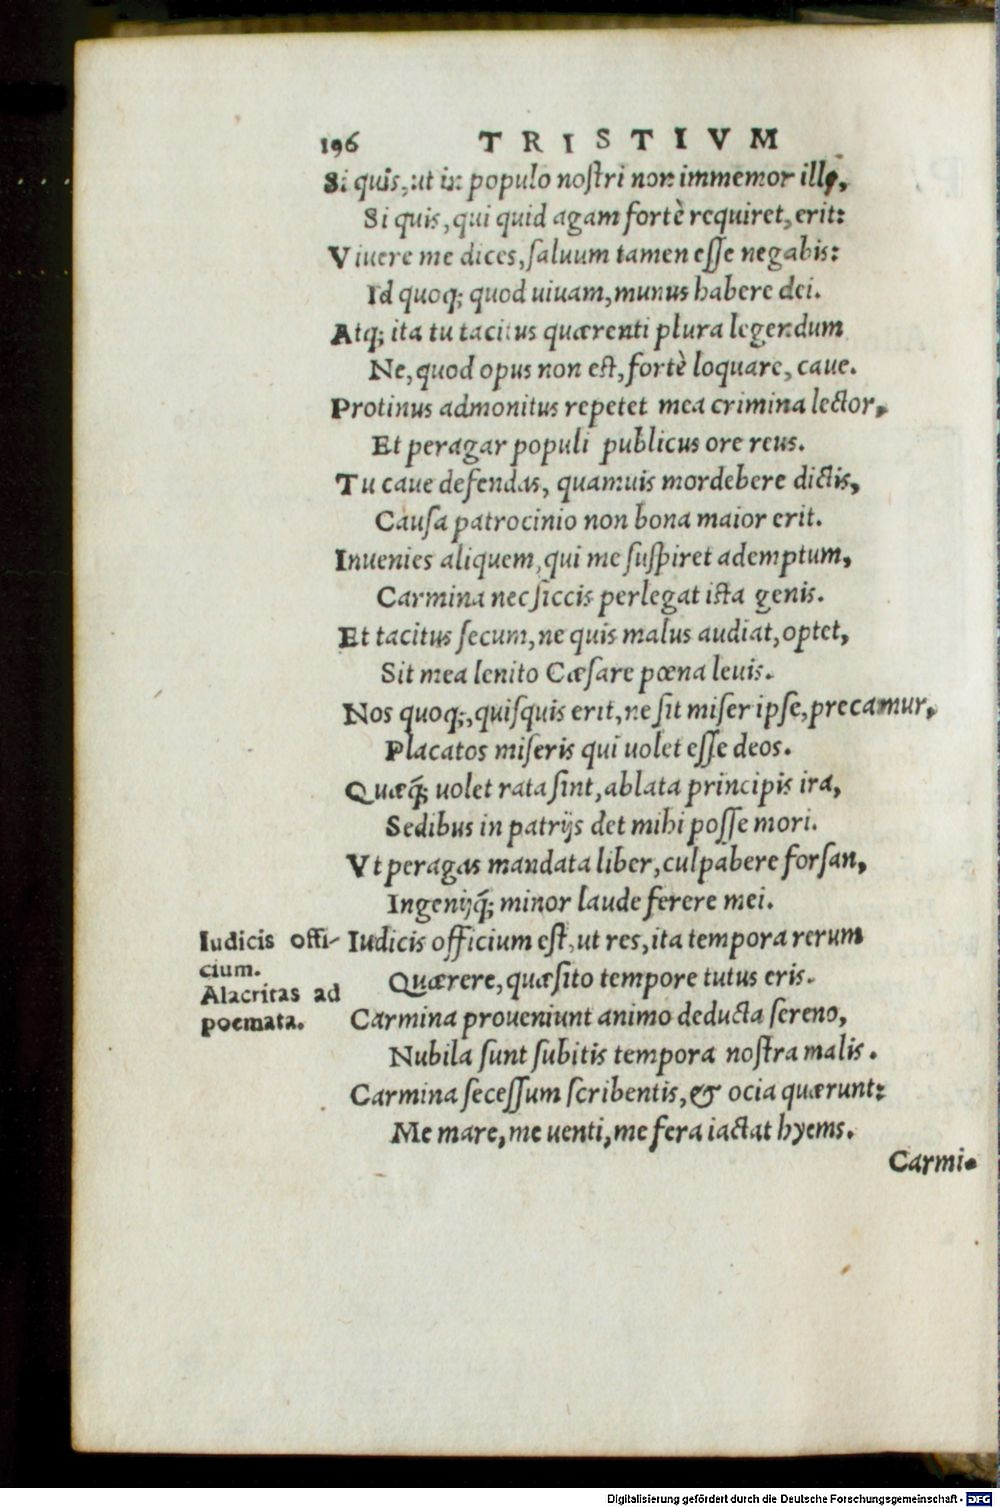 196 TRISTIVM
Si quis, ut in populo noſtri non immemor illo,
Si quis, qui quid agam fortè requiret, erit:
Viuere me dices, ſaluum tamen eſſe negabis:
Id quoq; quod uiuam, munus habere dei.
Atq; ita tu tacitus quærenti plura legendum
Ne, quod opus non eſt, fortè loquare, caue.
Protinus admonitus repetet mea crimina lector,
Et peragar populi publicus ore reus.
Tu caue defendas, quamuis mordebere dictis,
Cauſa patrocinio non bona maior erit.
Inuenies aliquem, qui me ſuſpiret ademptum,
Carmina nec ſiccis perlegat iſta genis.
Et tacitus ſecum, ne quis malus audiat, optet,
Sit mea lenito Cæſare pœna leuis.
Nos quoq;, quiſquis erit, ne ſit miſer ipſe, precamur,
Placatos miſeris qui uolet eſſe deos.
Quæq́; uolet rata ſint, ablata principis ira,
Sedibus in patrijs det mihi poſſe mori.
Vt peragas mandata liber, culpabere forſan,
Ingenijq́; minor laude ferere mei.
Iudicis offi-
cium.
Iudicis officium eſt, ut res, ita tempora rerum
Quærere, quæſito tempore tutus eris.
Alacritas ad
poemata.
Carmina proueniunt animo deducta ſereno,
Nubila ſunt ſubitis tempora noſtra malis.
Carmina ſeceſſum ſcribentis, & ocia quærunt:
Me mare, me uenti, me fera iactat hyems.
Carmi-
Digitalisierung gefördert durch die Deutsche Forschungsgemeinschaft - DFG